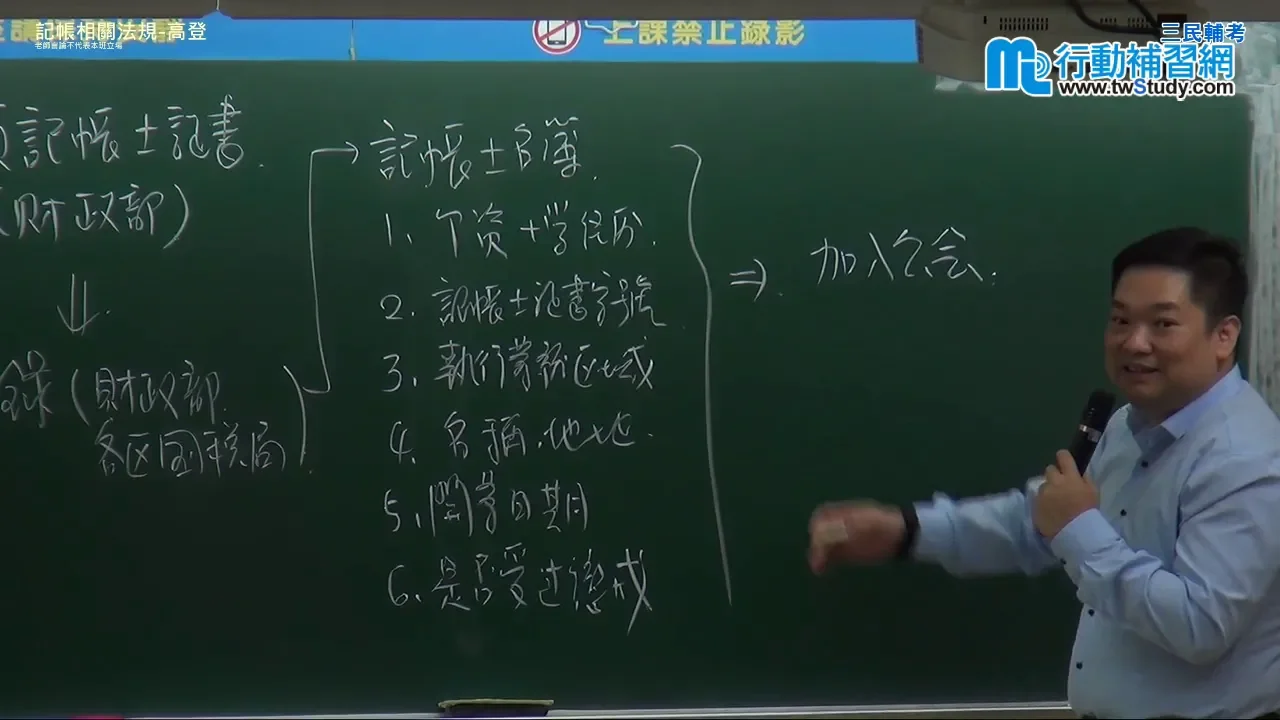 記帳相關法規-高登
老師言論不代表本班立場
上課禁止錄影
三民輔考
行動補習網
www.twStudy.com
記帳士証書.
(財政部)
⇓.
錄(財政部.
各区国稅局).
記帳士名簿.
1、个资+學经历.
2. 記帳士证書字號.
3、執行業務区域
4. 名稱.地址.
5、開業日期
6、是否受过懲戒
⇒. 加入公会.